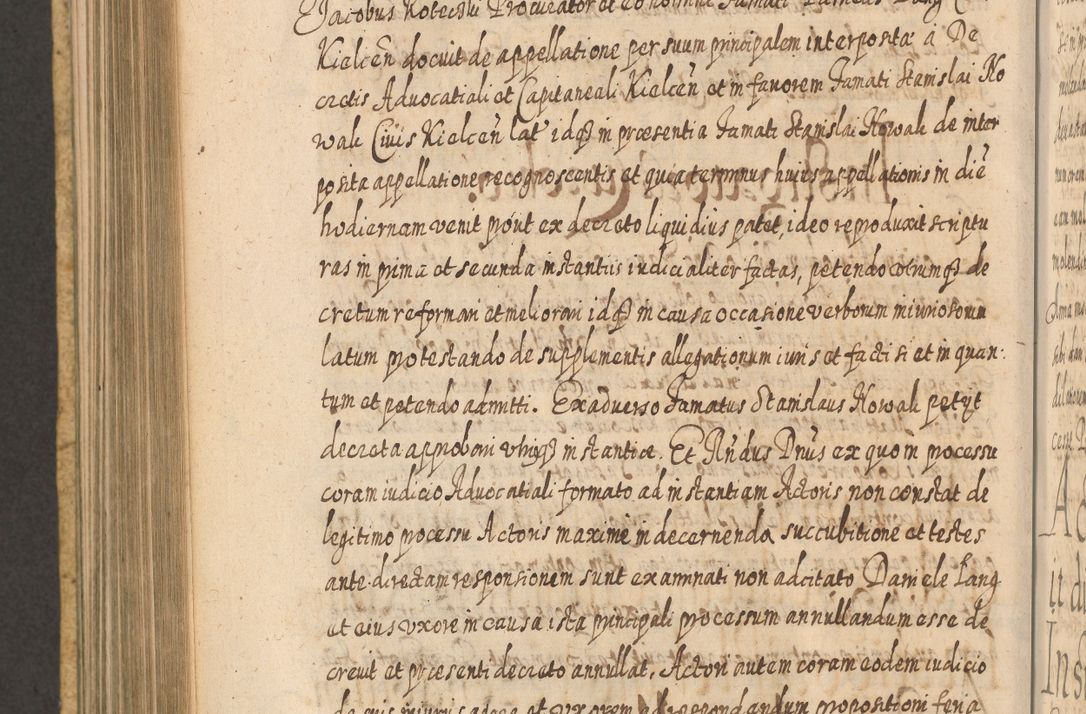 Jacobus Kotecski Procurator et eo nomine Famati Danielis Lang C
Kielceń docuit de appellatione per suum principalem interposita a De
cretis Advocatiali et Capitaneali Kielceń et in favorem Famati Stanislai No
wak Civis Kielceń lat idq̃ in præsentia Famati Stanislai Nowak de inter
posita appellatione recognoscentis et quia terminus huius appellationis in die
hodiernam venit prout ex decreto liquidius patet, ideo reproduxit scriptu
ras in prima et secunda instantiis iudicialiter factas, petendo utrumq̃ de
cretum reformari et meliorari idq̃ in causa occasione verborum iniuriosorum
latum protestando de supplementis allegationum iuris et facti si et in quan:
tum et petendo admitti. Ex adverso Famatus Stanislaus Nowak petyt
decreta approbari utriusq̃ instantiæ. Et Rńdus Dnus ex quo in processu
coram iudicio Advocatiali formato ad instantiam Actoris non constat de
legitimo processu Actoris maxime in decernenda succubitione et testes
ante directam responsionem sunt examinati non adcitato Daniele Lang
et eius uxore in causa ista principali processum annullandum esse de
crevit et præsenti decreto annullat, Actori autem coram eodem iudicio
de quis iniuriis agere et uxorem ad respondendum propositioni feria